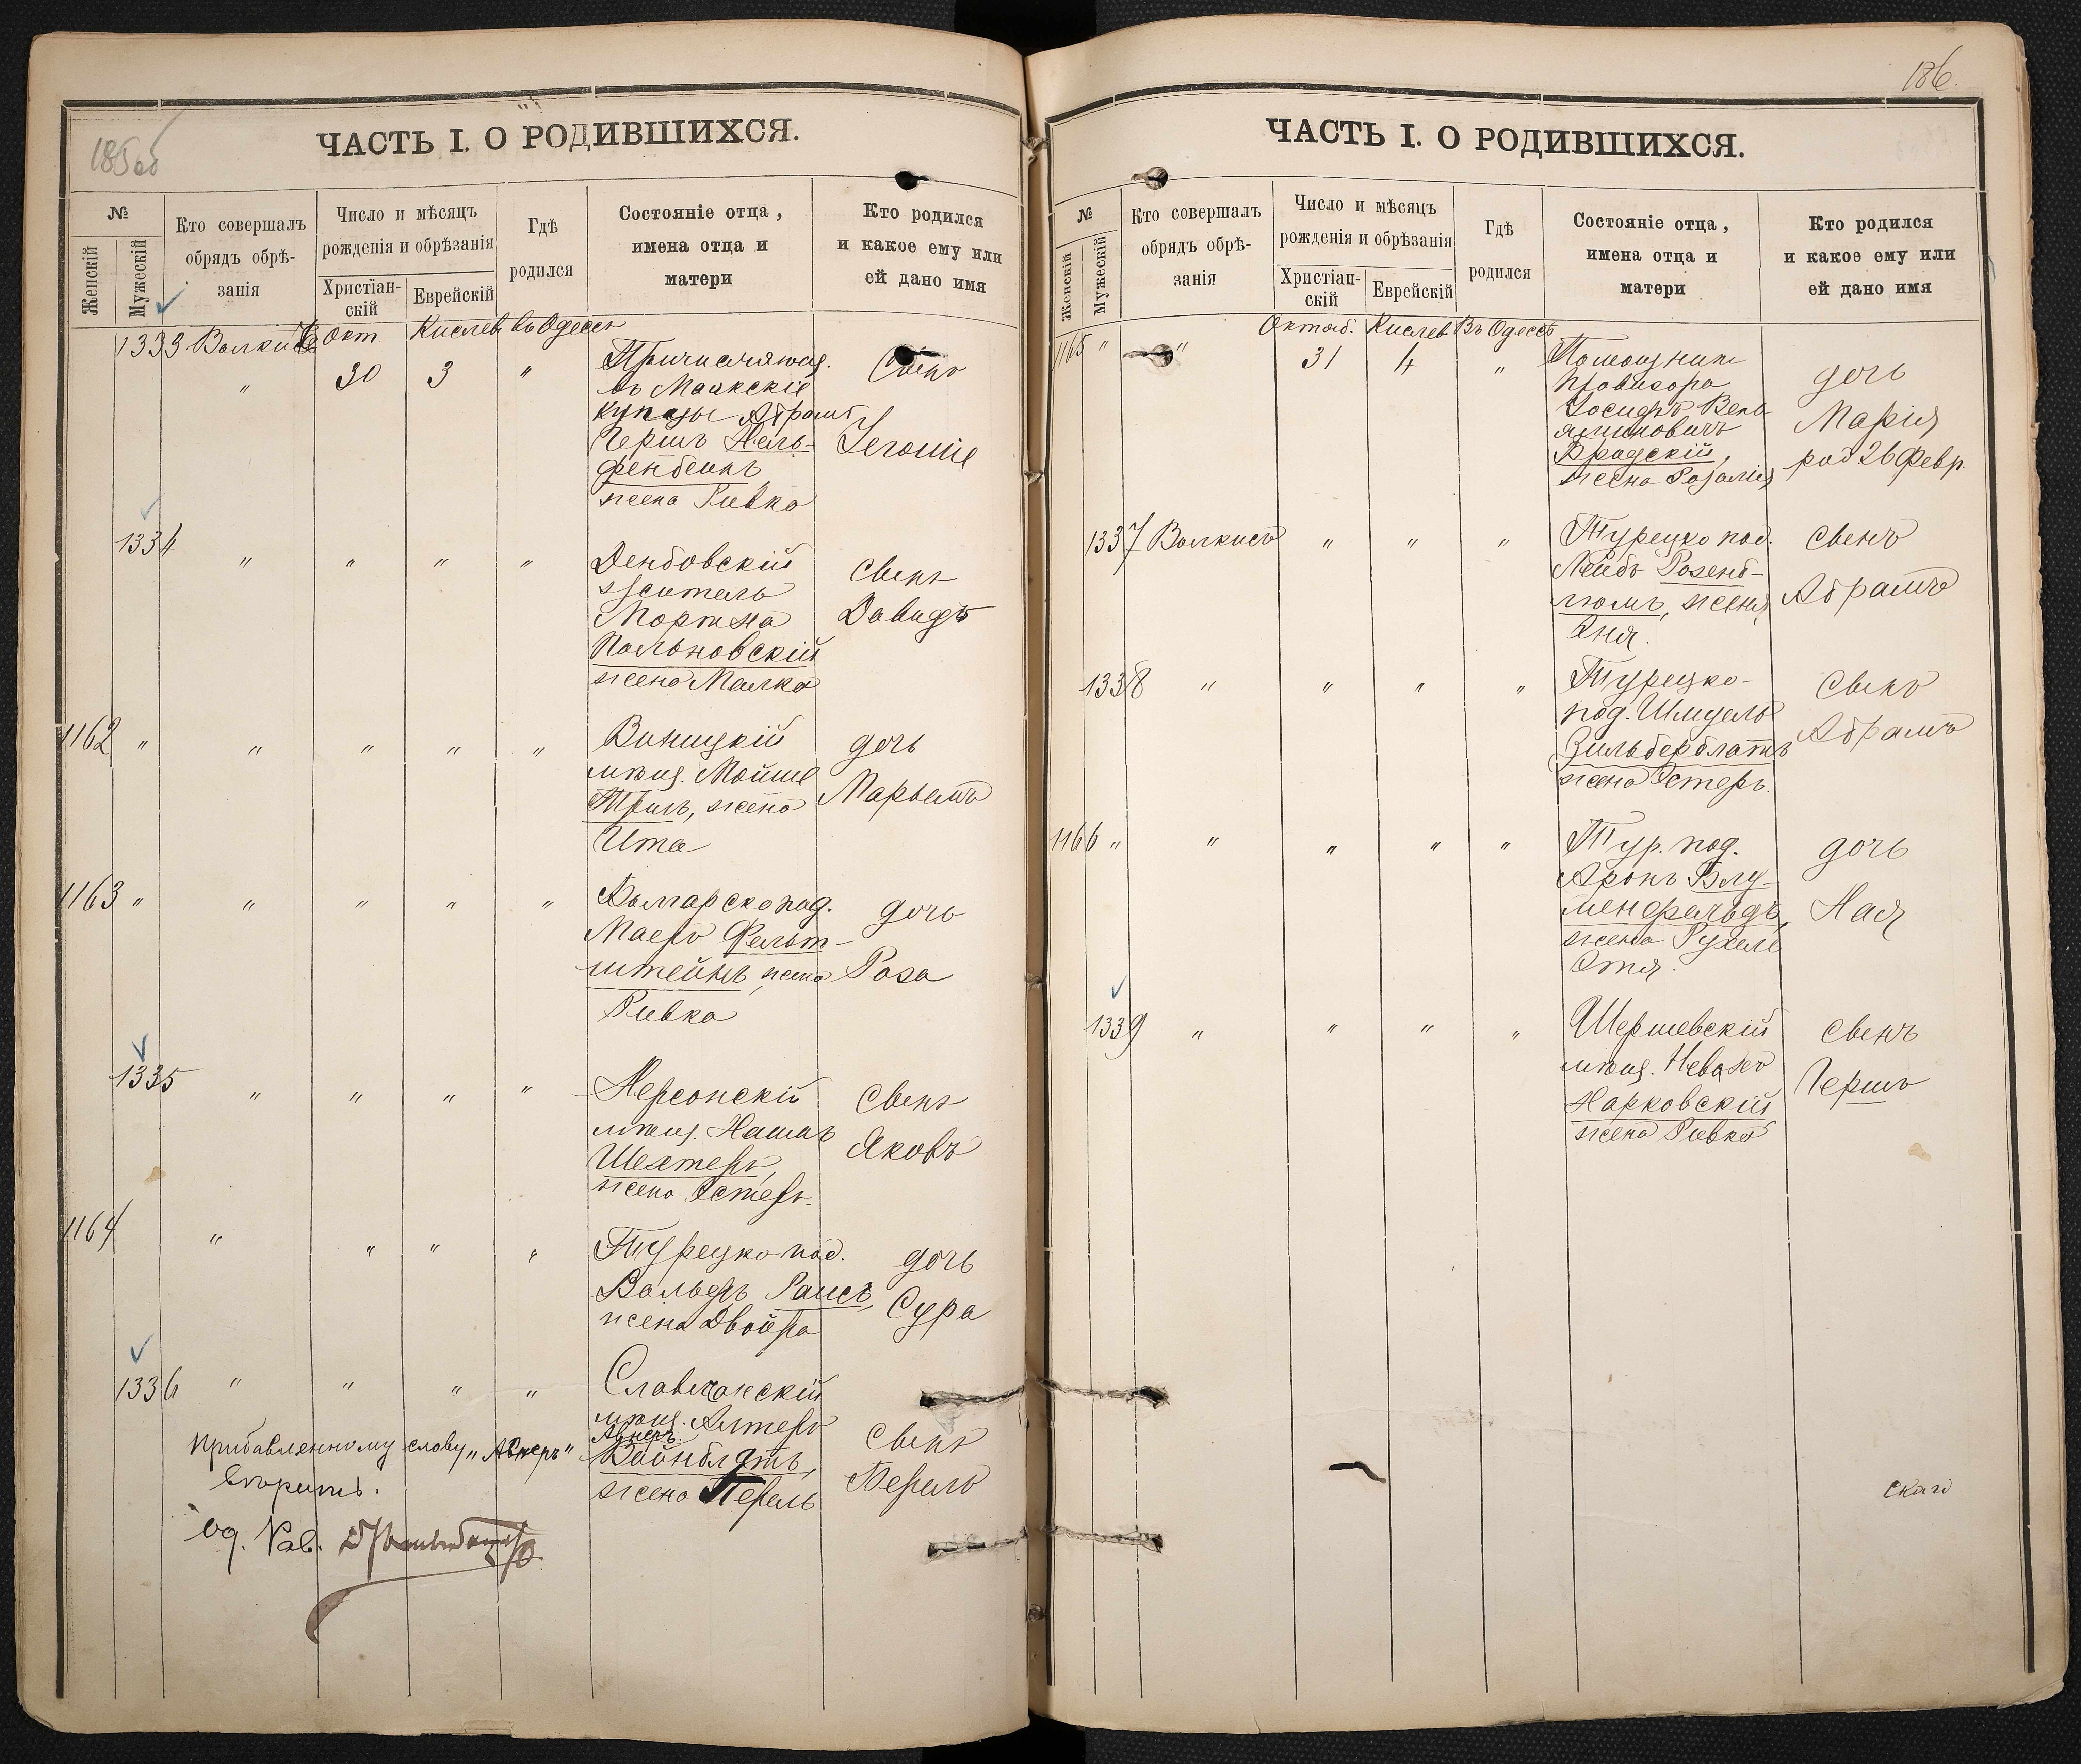 185об
ЧАСТЬ I. О РОДИВШИХСЯ.
№
Женскій
Мужескій
Кто совершалъ
обрядъ обрѣ-
занія
Число и мѣсяцъ
рожденія и обрѣзанія
Христіан-
скій
Еврейскій
Гдѣ
родился
Состояніе отца,
имена отца и
матери
Кто родился
и какое ему или
ей дано имя
1333 Волкисъ Окт. Кислев въ Одессѣ
" 30 3 "
въ Маякскіе
купцы Абрамъ
Гершъ Гель-
фенбейнъ,
жена Ривка
сынъ
1334 " " " "
житель
Польновскій
жена Малка
сынъ
Давидъ
1162 " " " " "
Виницкій
мѣщ. Мойше
Триль, жена
Ита
дочь
Марьемъ
1163 " " " " "
Болгарско под.
Маеръ Фельт-
штейнъ, жена
Ривка
дочь
Роза
1335 " " " "
Херсонскій
мѣщ.
Шехтеръ,
жена Эстеръ.
сынъ
Яковъ
1164 " " " "
Турецко под.
Вольфъ Раисъ,
жена Двойра
дочь
Сура
1336 " " " "
мѣщ. Алтеръ
Авнеръ
Вайнблатъ,
жена Перель
сынъ
Берель
Прибавленному слову "Авнеръ"
вѣрить.
Од. Рав.
186.
ЧАСТЬ I. О РОДИВШИХСЯ.
№
Женскій
Мужескій
Кто совершалъ
обрядъ обрѣ-
занія
Число и мѣсяцъ
рожденія и обрѣзанія
Христіан-
скій
Еврейскій
Гдѣ
родился
Состояніе отца,
имена отца и
матери
Кто родился
и какое ему или
ей дано имя
Октяб. Кислев Въ Одессѣ
1165 " " 31 4 "
Помощникъ
провизора
Іосифъ Вень-
яминовичъ
Бродскій,
жена Розалія
дочь
Марія
род 26 Февр.
1337 Волкисъ " " "
Турецко под.
Лейбъ Розенб-
люмъ, жена
Хня.
сынъ
Абрамъ
1338 " " " "
Турецко-
под. Шмуель
Зильберблатъ
жена Эстеръ.
сынъ
Абрамъ
1166 " " " " "
Тур. под.
Аронъ Блу-
менфельдъ,
жена Рухель
Этя.
дочь
Хая
1339 " " " "
Шершевскій
мѣщ.
Харковскій
жена Ривка
сынъ
Гершъ